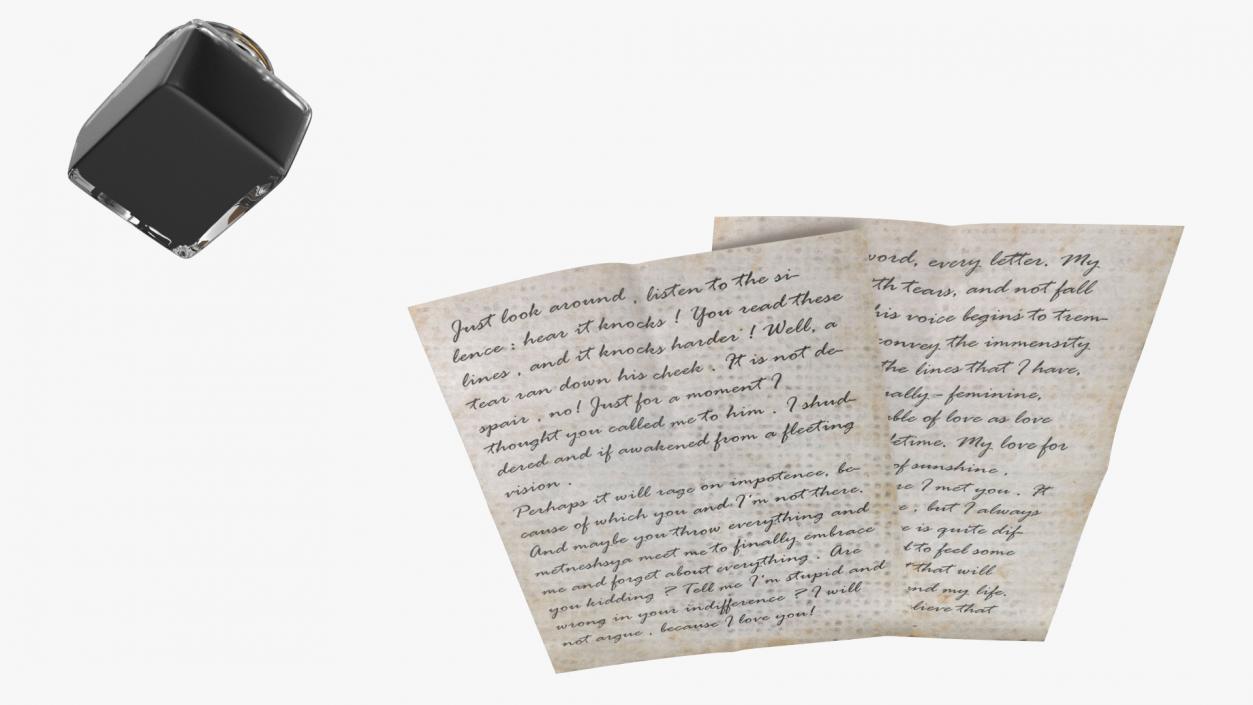 Just look around , listen to the si-
lence : hear it knocks ! You read these
lines , and it knocks harder ! Well, a
tear ran down his cheek . It is not de-
spair , no! Just for a moment I
thought you called me to him . I shud-
dered and if awakened from a fleeting
vision .
Perhaps it will rage on impotence, be-
cause of which you and I'm not there.
And maybe you throw everything and
metneshsya meet me to finally embrace
me and forget about everything . Are
you kidding ? Tell me I'm stupid and
wrong in your indifference ? I will
not argue , because I love you!
word, every letter. My
th tears, and not fall
his voice begins to trem-
convey the immensity
the lines that I have,
nally - feminine,
ble of love as love
fetime. My love for
of sunshine .
re I met you . It
e ; but I always
e is quite dif-
t to feel some
that will
nd my life.
lieve that